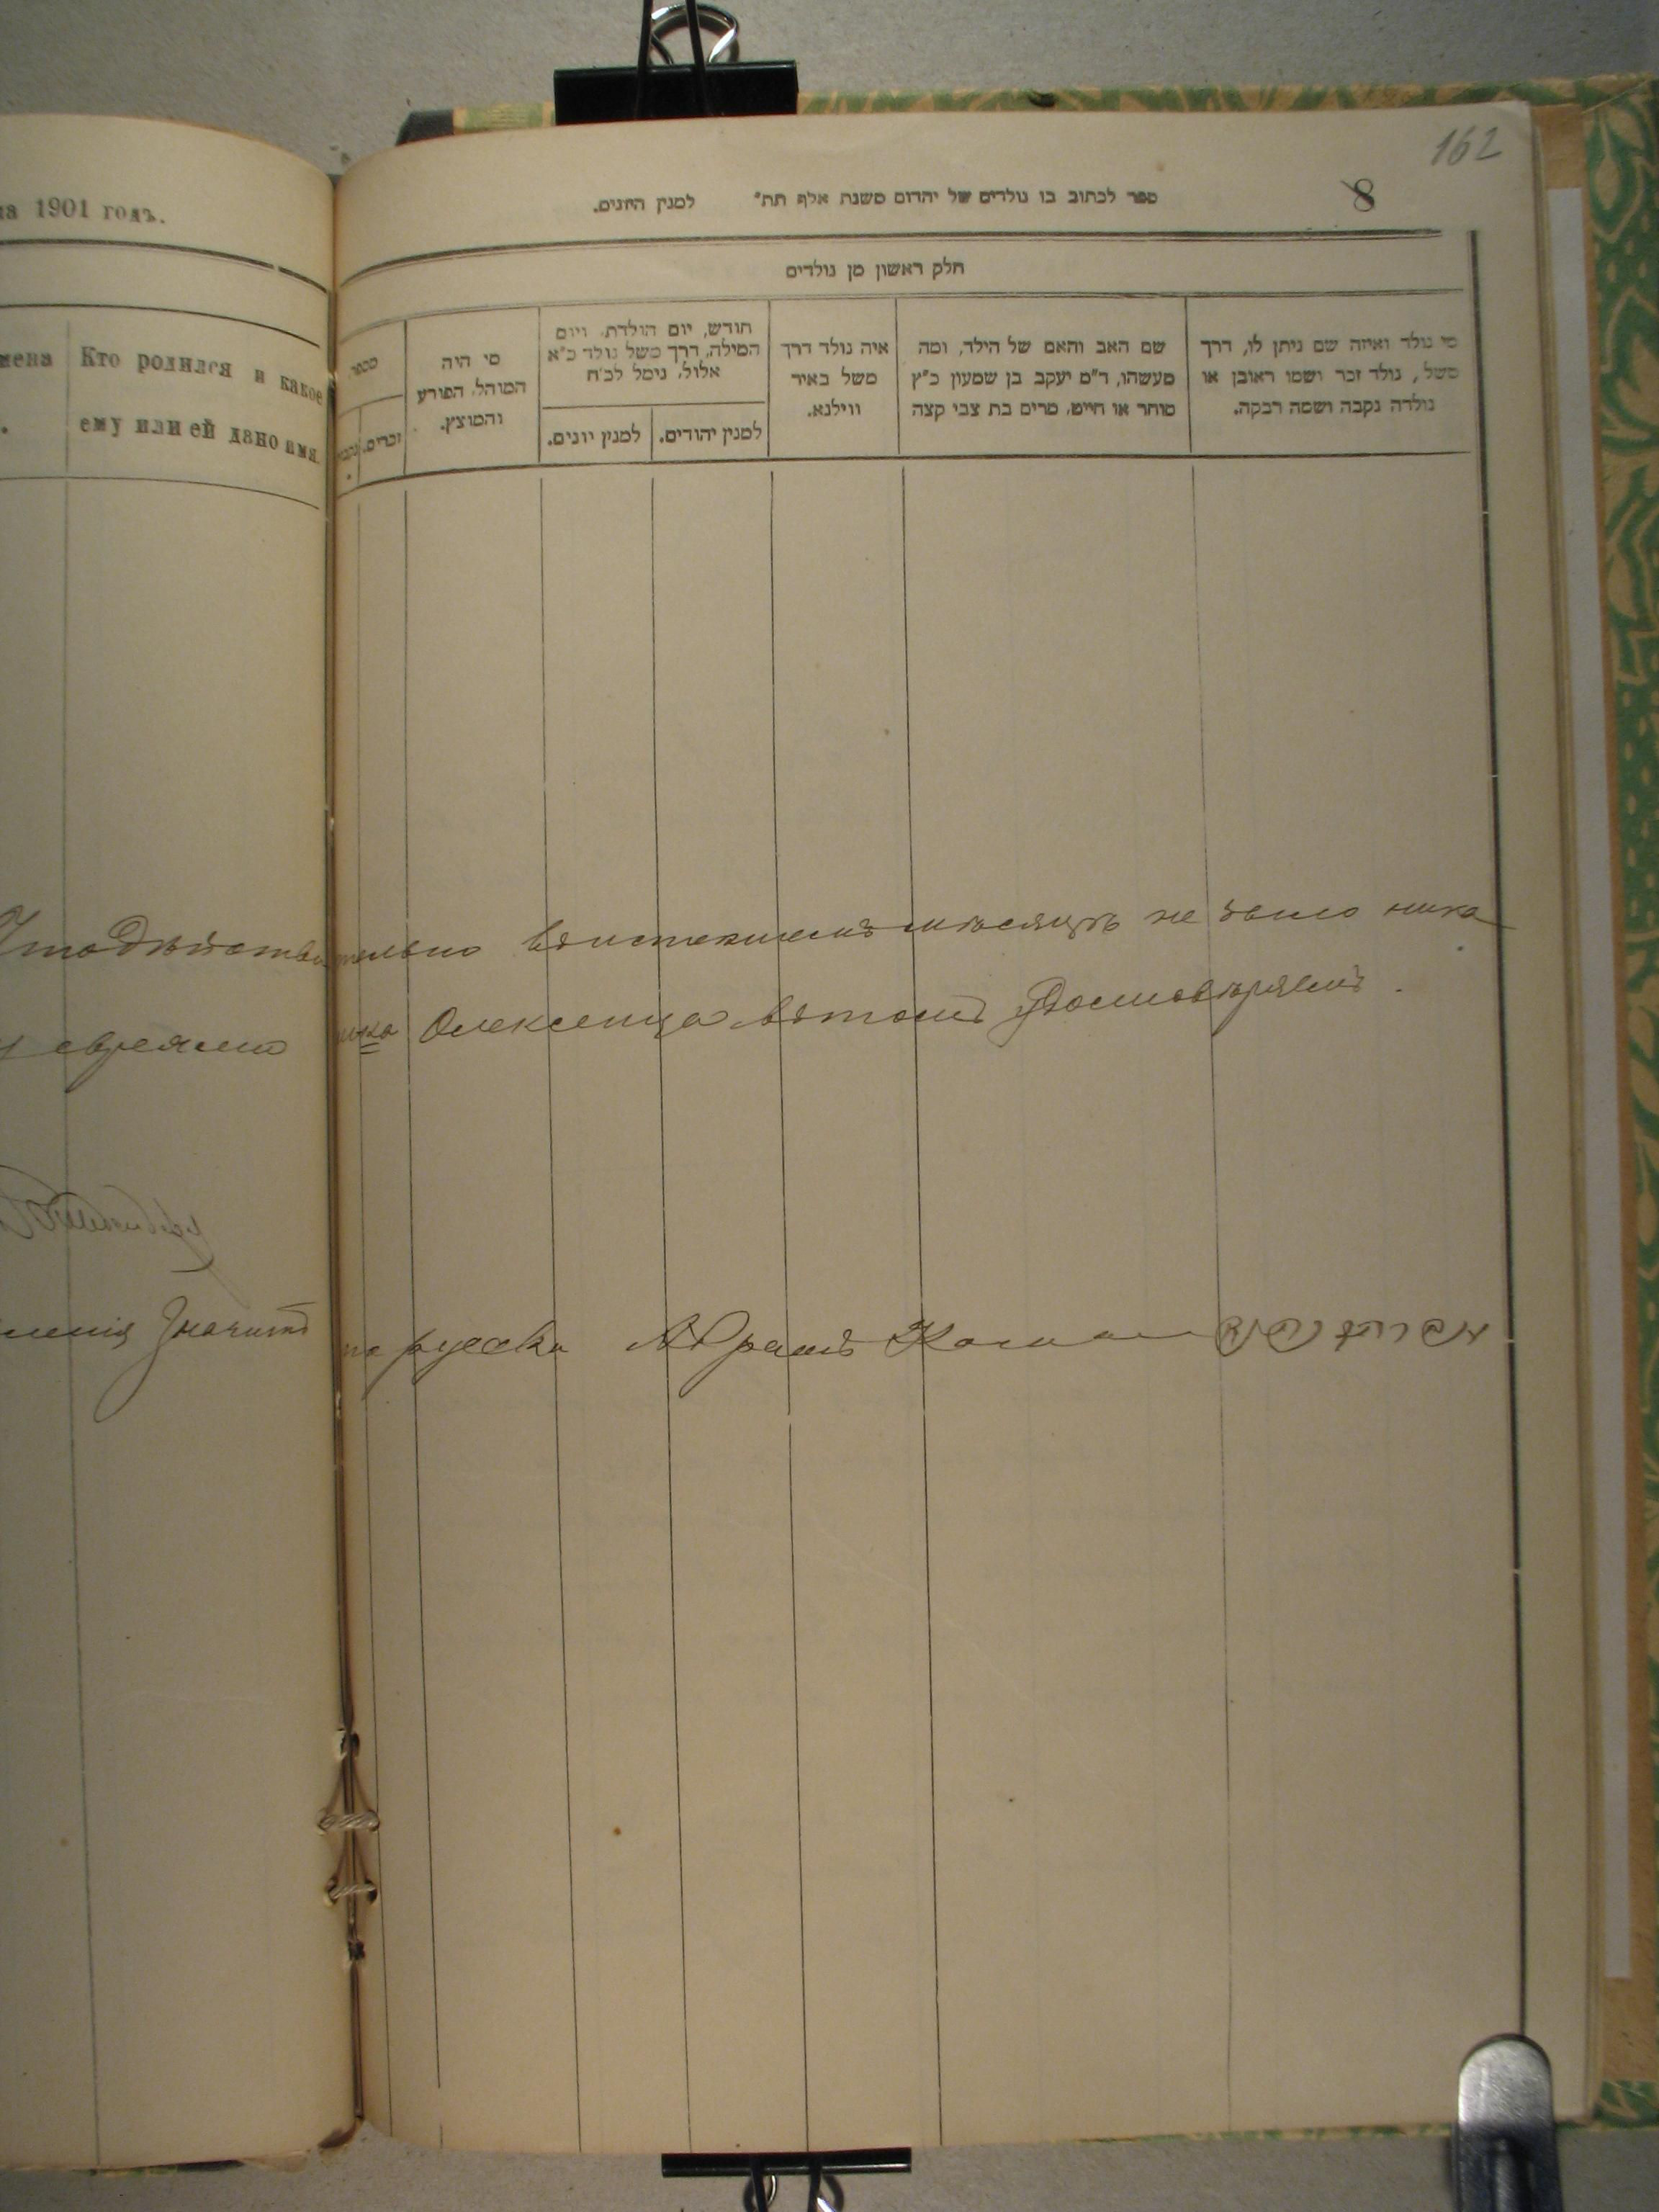 162
на 1901 годъ.
ספר לכתוב בו נולדים של יהדום משנת אלף תת״ למנין היונים.
8
חלק ראשון מן נולדים
мена
Кто родился и какое
ему или ей дано имя.
מי נולד ואיזה שם ניתן לו, דרך
משל, נולד זכר ושמו ראובן או
נולדה נקבה ושמה רבקה.
שם האב והאם של הילד, ומה
מעשהו, ד״מ יעקב בן שמעון כ״ץ
סוחר או חייט, מרים בת צבי קצה
איה נולד דרך
משל באיר
ווילנא.
חודש, יום הולדת, ויום
המילה, דרך משל נולד כ״א
אלול, נימל לכ״ח
למנין יהודים.
למנין יונים.
מי היה
המוהל, הפורע
והמוצץ.
מספר
זכרים.
Что действительно в истекшемъ мѣсяцѣ не было ника
евреямъ Олексенца в томъ
значитъ по русски Абрамъ